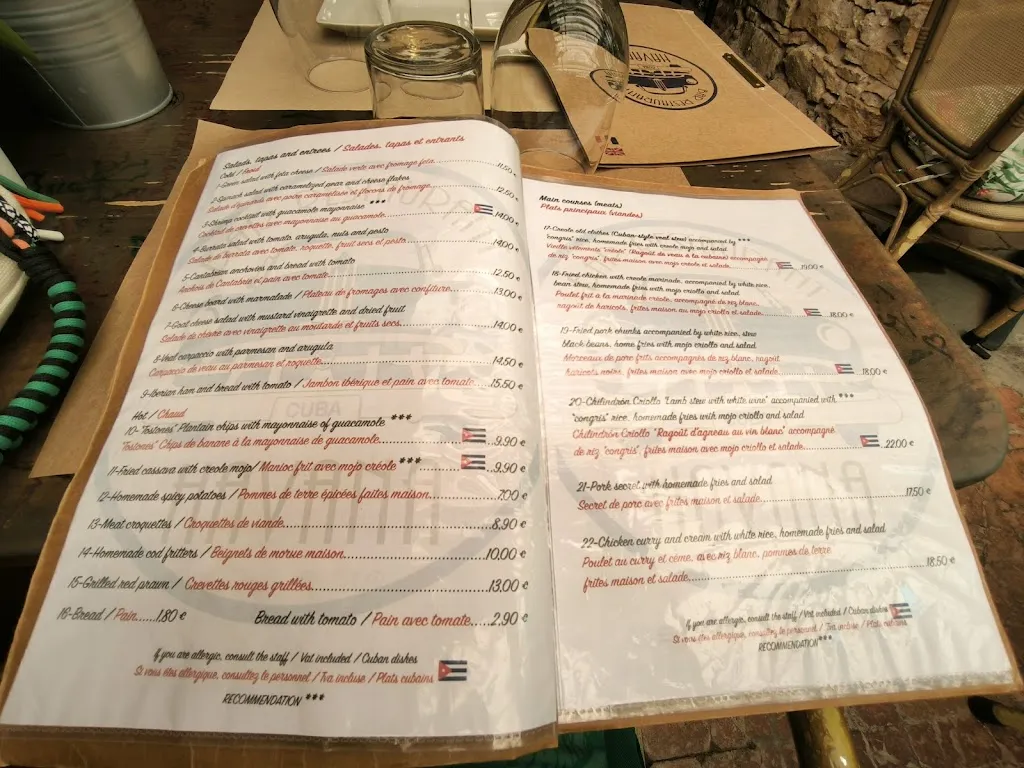 Salads, tapas and entrees / Salades, tapas et entrants
Cold / Froid
1-Green salad with feta cheese / Salade verte avec fromage feta 11.50 €
2-Spinach salad with caramelized pear and cheese flakes
Salade d'épinards avec poire caramelisee et flocons de fromage 12.50 €
3-Shrimp cocktail with guacamole mayonnaise ***
Cocktail de crevettes avec mayonnaise au guacamole 14.00 €
4-Burrata salad with tomato, arugula, nuts and pesto
Salade de burrata avec tomate, roquette, fruit secs et pesto 14.00 €
5-Cantabrian anchovies and bread with tomato
Anchois de Cantabria et pain avec tomate 12.50 €
6-Cheese board with marmalade / Plateau de fromages avec confiture 13.00 €
7-Goat cheese salad with mustard vinaigrette and dried fruit
Salade de chevre avec vinaigrette au moutarde et fruits secs 14.00 €
8-Veal carpaccio with parmesan and arugula
Carpaccio de veau au parmesan et roquette 14.50 €
9-Iberian ham and bread with tomato / Jambon ibérique et pain avec tomate 15.50 €
Hot / Chaud
10-"Tostones" Plantain chips with mayonnaise of guacamole ***
"Tostones" Chips de banane à la mayonnaise de guacamole 9.90 €
11-Fried cassava with creole mojo / Manioc frit avec mojo créole *** 9.90 €
12-Homemade spicy potatoes / Pommes de terre épicées faites maison 7.00 €
13-Meat croquettes / Croquettes de viande 8.90 €
14-Homemade cod fritters / Beignets de morue maison 10.00 €
15-Grilled red prawn / Crevettes rouges grillées 13.00 €
16-Bread / Pain......1.80 € Bread with tomato / Pain avec tomate.....2.90 €
If you are allergic, consult the staff / Vat included / Cuban dishes
Si vous êtes allergique, consultez le personnel / Tva incluse / Plats cubains
RECOMMENDATION ***
CUBA
HAVANA
BAR RESTAURANT
HAVANA
Main courses (meats)
Plats principaux (viandes)
17-Creole old clothes (Cuban-style veal stew) accompanied by ***
"congris" rice, homemade fries with creole mojo and salad
19.00 €
18-Fried chicken with creole marinade, accompanied by white rice,
bean stew, homemade fries with mojo criollo and salad
Poulet frit à la marinade créole, accompagné de riz blanc,
ragoût de haricots, frites maison au mojo criollo et salade 18.00 €
19-Fried pork chunks accompanied by white rice, stew
black beans, home fries with mojo criollo and salad
Morceaux de porc frits accompagnés de riz blanc, ragoût
haricots noirs, frites maison au mojo criollo et salade 18.00 €
20-Chilindrón Criollo "Lamb stew with white wine" accompanied with ***
"congris" rice, homemade fries with mojo criollo and salad
Chilindrón Criollo "Ragoût d'agneau au vin blanc" accompagné
de riz "congris", frites maison au mojo criollo et salade 22.00 €
21-Pork secret with homemade fries and salad
Secret de porc avec frites maison et salade 17.50 €
22-Chicken curry and cream with white rice, homemade fries and salad
Poulet au curry et crème, avec riz blanc, pommes de terre
frites maison et salade 18.50 €
If you are allergic, consult the staff / Vat included / Cuban dishes
Si vous êtes allergique, consultez le personnel / Tva incluse / Plats cubains
RECOMMENDATION***